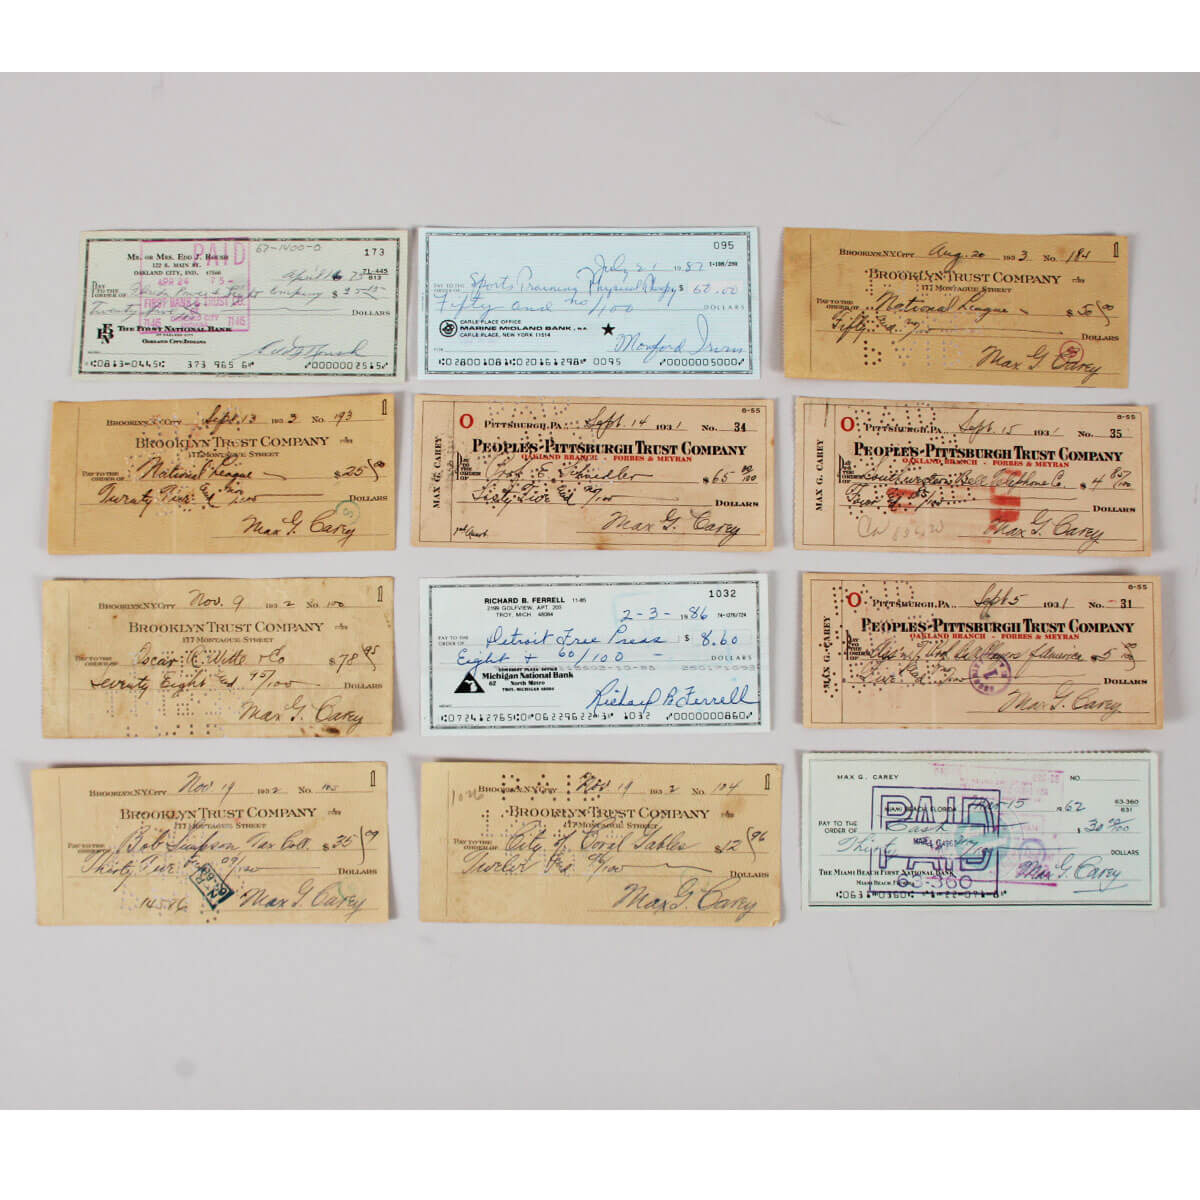 MR. OR MRS. EDD J. ROUSH
122 S. MAIN ST.
OAKLAND CITY, IND. 47560
67-1400-0
173
PAID
APR 24 75
April 16 75
71-445
813
PAY TO THE ORDER OF
Company $ 25.15
FIRST BANK & TRUST CO.
71-45 71-45
DOLLARS
THE FIRST NATIONAL BANK
OAKLAND CITY, INDIANA
Edd J Roush
⑆0813⑉0445⑆ 373 965 6⑈ ⑈0000002515⑈
095
July 21 1987
1-108/280
PAY TO THE ORDER OF Sports Training Physical Therapy $ 50.00
Fifty and no/100 DOLLARS
CARLE PLACE OFFICE
MARINE MIDLAND BANK, N.A.
CARLE PLACE, NEW YORK 11514
FOR
Monford Irvin
⑆028001081⑆020161298⑈ 0095 ⑈0000005000⑈
BROOKLYN, N.Y. CITY Aug. 20 1933 No. 184
1
BROOKLYN TRUST COMPANY
177 MONTAGUE STREET
PAY TO THE ORDER OF National League $ 50 00
Fifty and no/100 DOLLARS
Max G. Carey
BROOKLYN, N.Y. CITY Sept. 13 1933 No. 193
1
BROOKLYN TRUST COMPANY
177 MONTAGUE STREET
PAY TO THE ORDER OF National League $ 25 00
Twenty Five and no/100 DOLLARS
Max G. Carey
MAX G. CAREY
8-55
O PITTSBURGH, PA. Sept. 14 1931 No. 34
PEOPLES-PITTSBURGH TRUST COMPANY
OAKLAND BRANCH - FORBES & MEYRAN
PAY TO THE ORDER OF Schindler $ 65 00/100
Sixty Five and 00/100 DOLLARS
Max G. Carey
MAX G. CAREY
8-55
O PITTSBURGH, PA. Sept. 15 1931 No. 35
PEOPLES-PITTSBURGH TRUST COMPANY
OAKLAND BRANCH - FORBES & MEYRAN
PAY TO THE ORDER OF Southwestern Bell Telephone Co. $ 4 85/100
Four and 85/100 DOLLARS
Max G. Carey
BROOKLYN, N.Y. CITY Nov. 9 1932 No. 100
1
BROOKLYN TRUST COMPANY
177 MONTAGUE STREET
PAY TO THE ORDER OF Oscar C. Witte & Co $ 78 95
Seventy Eight and 95/100 DOLLARS
Max G. Carey
RICHARD B. FERRELL 11-85
2199 GOLFVIEW, APT. 203
TROY, MICH. 48084
1032
2-3- 1986
74-1276/724
PAY TO THE ORDER OF Detroit Free Press $ 8.60
Eight + 60/100 DOLLARS
Michigan National Bank
North Metro
TROY, MICHIGAN 48084
Richard B Ferrell
⑆072412765⑆ 1032 ⑈0000000860⑈
MAX G. CAREY
8-55
O PITTSBURGH, PA. Sept 5 1931 No. 31
PEOPLES-PITTSBURGH TRUST COMPANY
OAKLAND BRANCH - FORBES & MEYRAN
PAY TO THE ORDER OF of America $ 5 00/100
Five and no/100 DOLLARS
Max G. Carey
BROOKLYN, N.Y. CITY Nov. 19 1932 No. 103
1
BROOKLYN TRUST COMPANY
177 MONTAGUE STREET
PAY TO THE ORDER OF Bob Simpson Tax Coll. $ 35 09
Thirty Five and 09/100 DOLLARS
14586
Max G. Carey
BROOKLYN, N.Y. CITY Nov. 19 1932 No. 104
1
BROOKLYN TRUST COMPANY
177 MONTAGUE STREET
PAY TO THE ORDER OF City of Coral Gables $ 12 96
Twelve and 96/100 DOLLARS
Max G. Carey
MAX G. CAREY
NO.
MIAMI BEACH, FLORIDA 15 1962
63-360
631
PAY TO THE ORDER OF Cash $ 30 00/100
PAID
63-360
Thirty DOLLARS
THE MIAMI BEACH FIRST NATIONAL BANK
MIAMI BEACH, FLORIDA
Max G. Carey
⑆0631⑉0360⑆